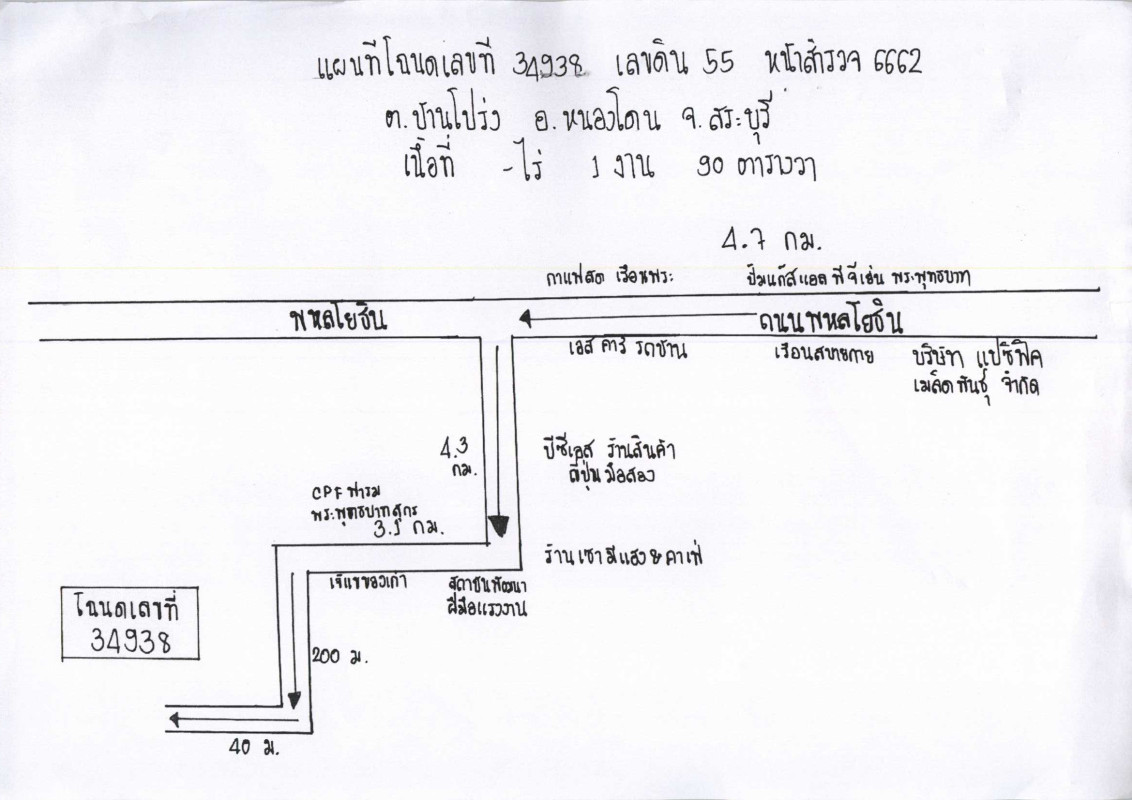 แผนที่โฉนดเลขที่ 34938 เลขดิน 55 หน้าสำรวจ 6662
ต.บ้านโปร่ง อ.หนองโดน จ.สระบุรี
เนื้อที่ -ไร่ 1 งาน 90 ตารางวา
4.7 กม.
กาแฟสด เรือนพระ ปั๊มแก๊สแอล พี จี เช่น พระพุทธบาท
พหลโยธิน ถนนพหลโยธิน
เอส คาร์ รถบ้าน เรือนสบายกาย บริษัท แปซิฟิค
เมล็ดพันธุ์ จำกัด
4.3
กม.
บีซีเอส ร้านสินค้า
ญี่ปุ่น มือสอง
CPF ฟาร์ม
พระพุทธบาทสุกร
3.1 กม.
ร้าน เซา มีแฮง & คาเฟ่
เจ๊แขของเก่า สถาบันพัฒนา
ฝีมือแรงงาน
โฉนดเลขที่
34938
200 ม.
40 ม.